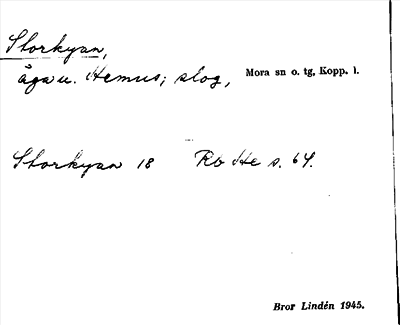 Storkyan,
äga u. Hemus; skog, Mora sn o. tg, Kopp. l.
Storkyan 18 Rb He s. 64.
Bror Lindén 1945.